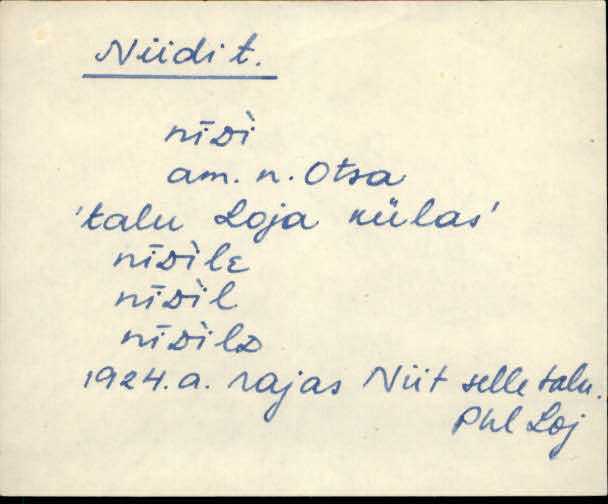 Niidi t.
nīᴅì
am. n. Otsa
'talu Loja külas'
nīᴅìle
nīᴅìl
nīᴅìlᴅ
1924. a. rajas Niit selle talu.
Phl Loj